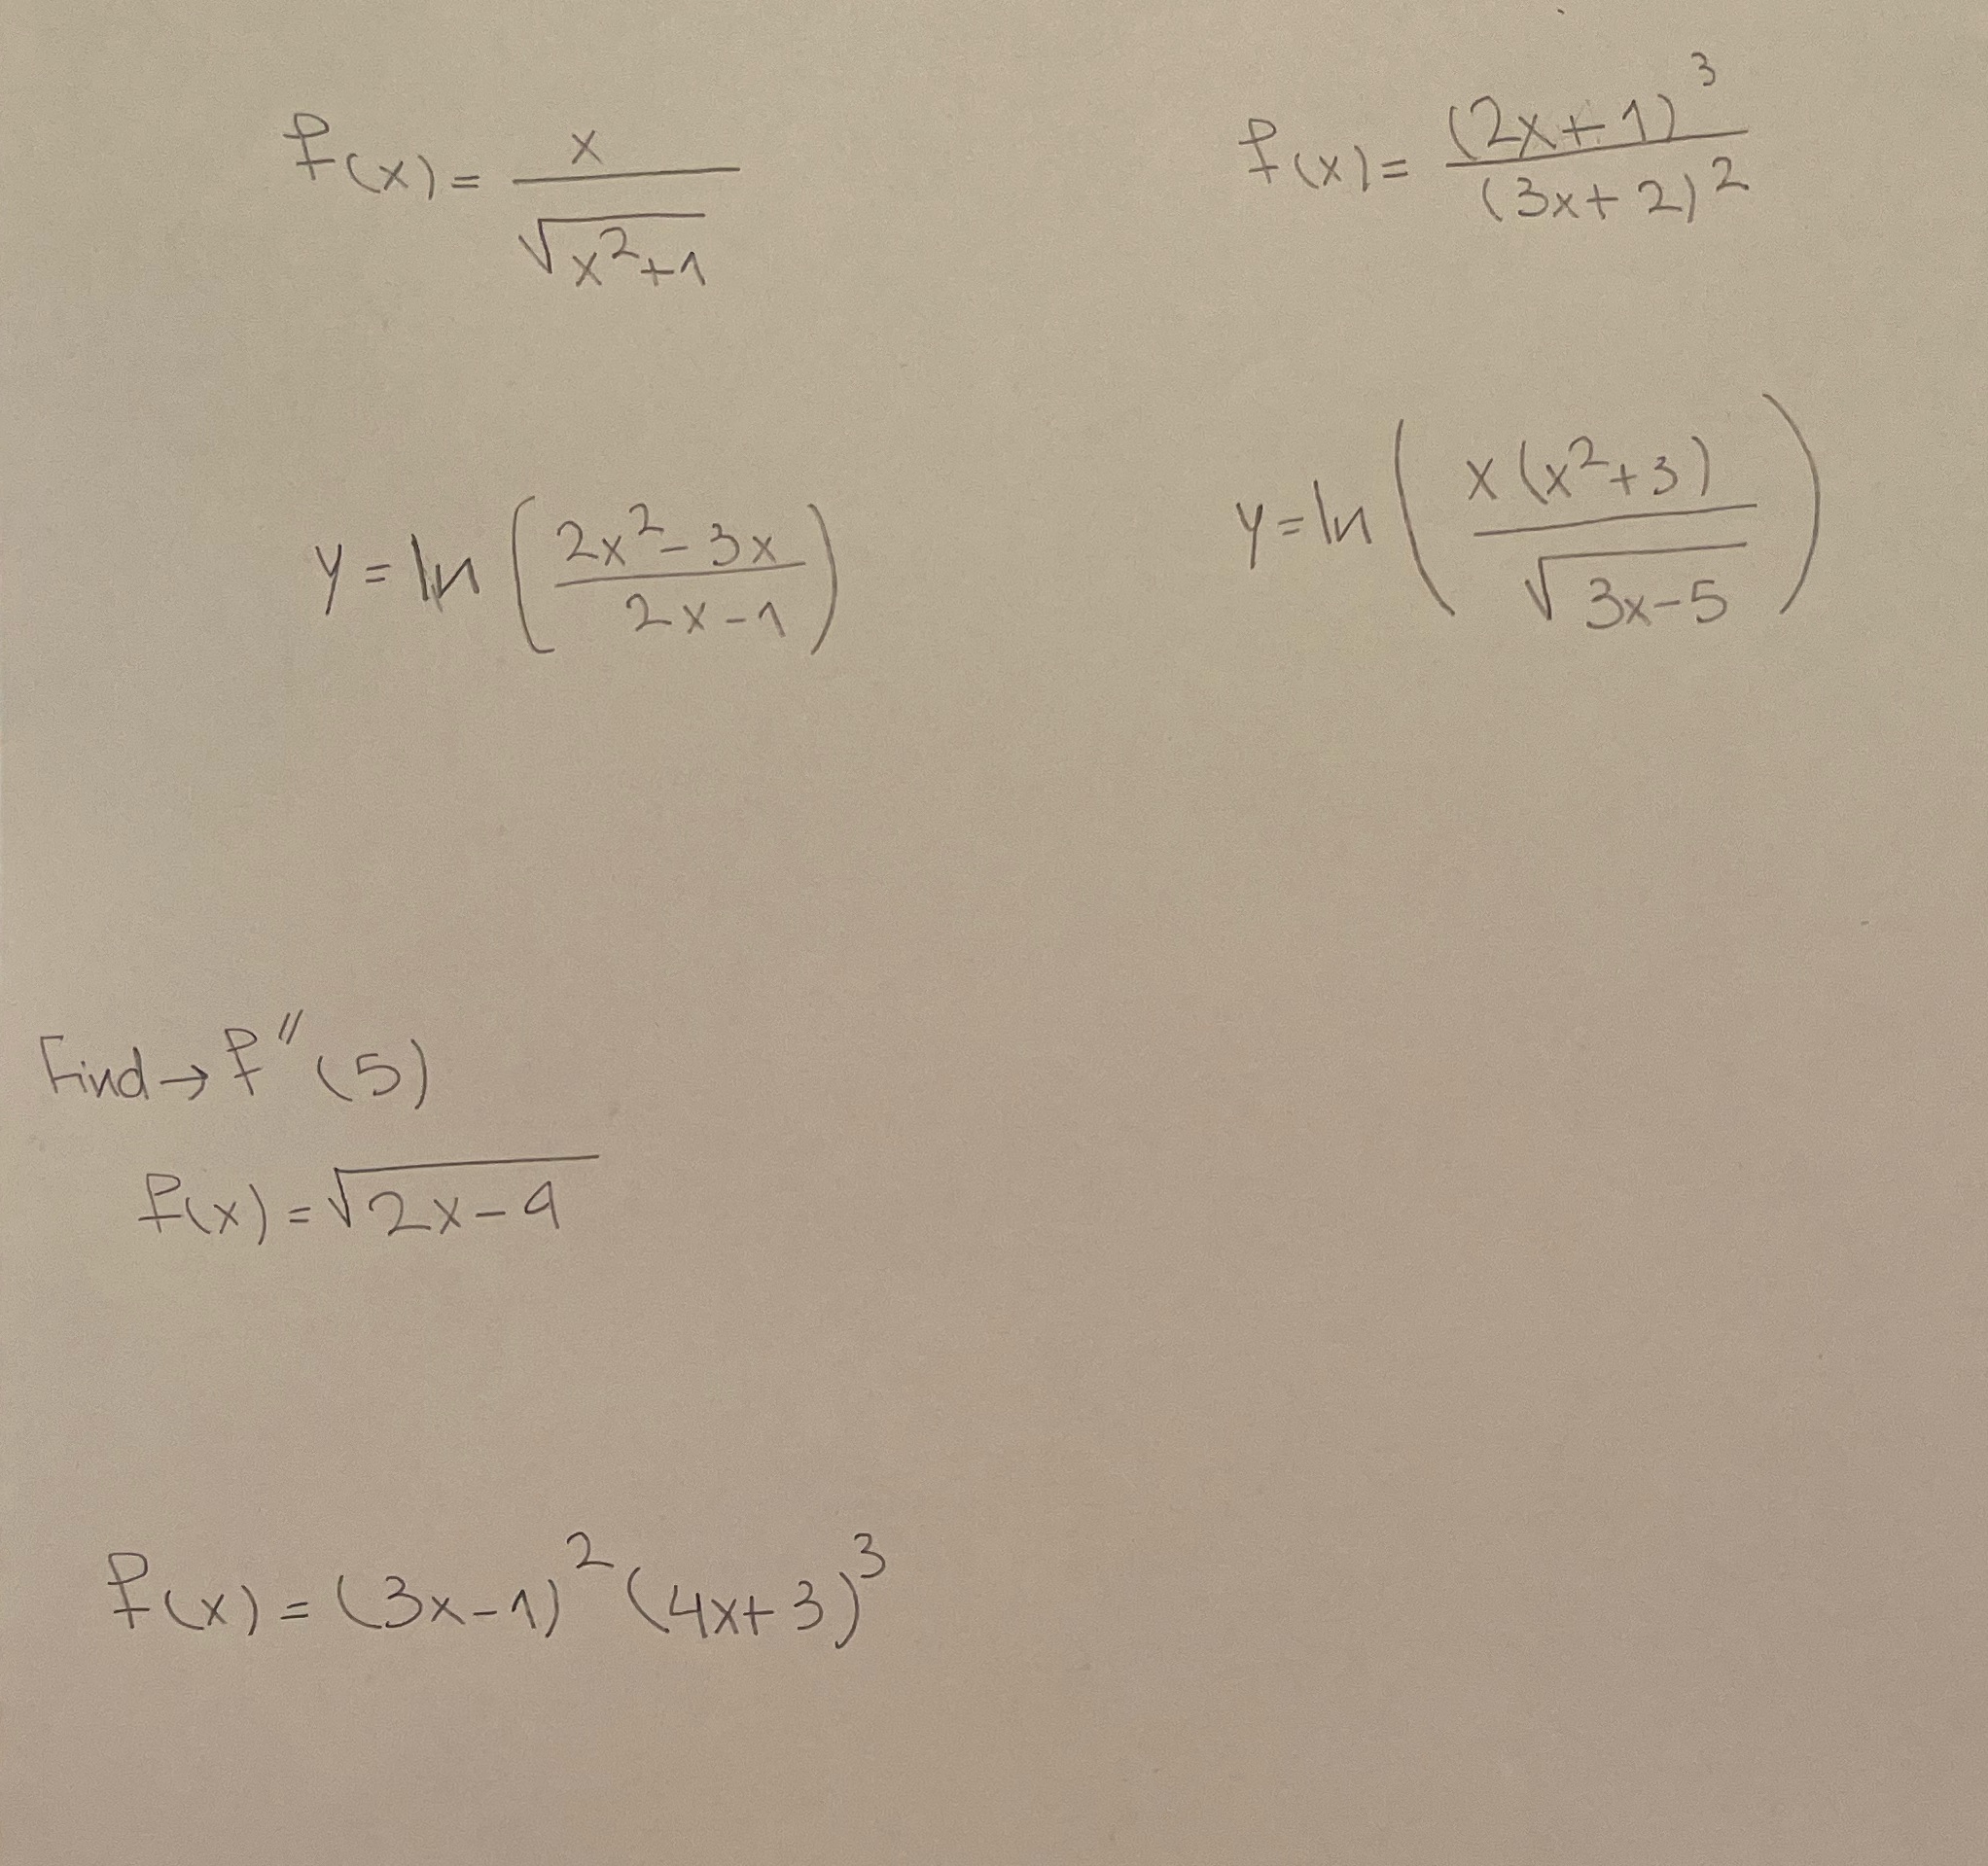 f(x) = x / √(x²+1)
f(x) = (2x+1)³ / (3x+2)²
y = ln ( (2x²-3x) / (2x-1) )
y = ln ( x(x²+3) / √(3x-5) )
Find → f″(5)
f(x) = √(2x-9)
f(x) = (3x-1)² (4x+3)³